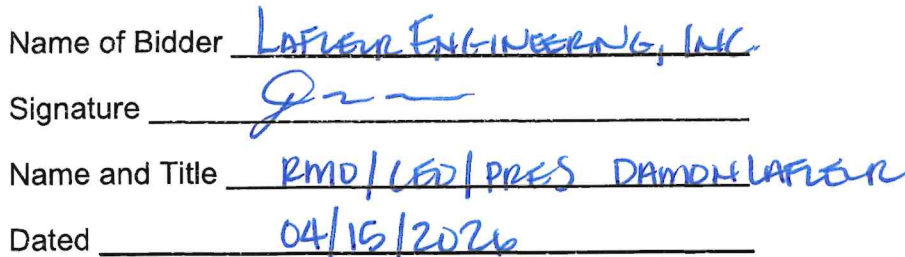 Name of Bidder LAFLEUR ENGINEERING, INC.
Signature
Name and Title RMO/CEO/PRES DAMON LAFLEUR
Dated 04/15/2026